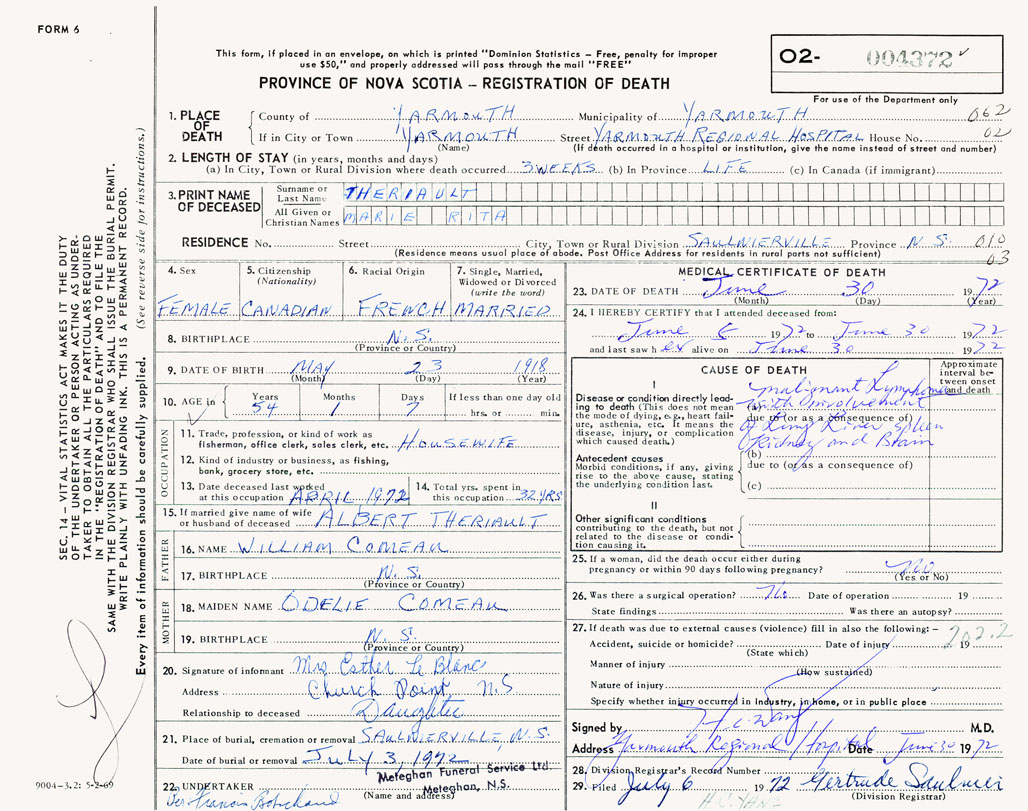 FORM 6
This form, if placed in an envelope, on which is printed "Dominion Statistics – Free, penalty for improper
use $50," and properly addressed will pass through the mail "FREE"
PROVINCE OF NOVA SCOTIA – REGISTRATION OF DEATH
O2- 004372
For use of the Department only
SEC. 14 – VITAL STATISTICS ACT MAKES IT THE DUTY
OF THE UNDERTAKER OR PERSON ACTING AS UNDER-
TAKER TO OBTAIN ALL THE PARTICULARS REQUIRED
IN THE "REGISTRATION OF DEATH" AND TO FILE THE
SAME WITH THE DIVISION REGISTRAR WHO SHALL ISSUE THE BURIAL PERMIT.
WRITE PLAINLY WITH UNFADING INK. THIS IS A PERMANENT RECORD.
Every item of information should be carefully supplied. (See reverse side for instructions.)
1. PLACE OF DEATH
County of YARMOUTH Municipality of YARMOUTH 062
If in City or Town YARMOUTH Street YARMOUTH REGIONAL HOSPITAL House No. 02
(Name) (If death occurred in a hospital or institution, give the name instead of street and number)
2. LENGTH OF STAY (in years, months and days)
(a) In City, Town or Rural Division where death occurred 3 WEEKS (b) In Province LIFE (c) In Canada (if immigrant)
3. PRINT NAME OF DECEASED
Surname or Last Name THERIAULT
All Given or Christian Names MARIE RITA
RESIDENCE No. Street City, Town or Rural Division SAULNIERVILLE Province N.S. 010
(Residence means usual place of abode. Post Office Address for residents in rural parts not sufficient) 03
4. Sex
FEMALE
5. Citizenship
(Nationality)
CANADIAN
6. Racial Origin
FRENCH
7. Single, Married,
Widowed or Divorced
(write the word)
MARRIED
8. BIRTHPLACE N.S.
(Province or Country)
9. DATE OF BIRTH MAY 23 1918
(Month) (Day) (Year)
10. AGE in Years Months Days If less than one day old
54 1 7 hrs. or min.
OCCUPATION
11. Trade, profession, or kind of work as
fishermen, office clerk, sales clerk, etc. HOUSEWIFE
12. Kind of industry or business, as fishing,
bank, grocery store, etc.
13. Date deceased last worked
at this occupation APRIL 1972
14. Total yrs. spent in
this occupation 32 YRS
15. If married give name of wife
or husband of deceased ALBERT THERIAULT
FATHER
16. NAME WILLIAM COMEAU
17. BIRTHPLACE N.S.
(Province or Country)
MOTHER
18. MAIDEN NAME ODELIE COMEAU
19. BIRTHPLACE N.S.
(Province or Country)
20. Signature of informant Mrs Esther Le Blanc
Address Church Point, N.S
Relationship to deceased Daughter
21. Place of burial, cremation or removal SAULNIERVILLE, N.S.
Date of burial or removal July 3, 1972
22. UNDERTAKER Meteghan Funeral Service Ltd.
(Name and address) Meteghan, N.S.
Per Francis
9004–3.2: 5-2-69
MEDICAL CERTIFICATE OF DEATH
23. DATE OF DEATH June 30 1972
(Month) (Day) (Year)
24. I HEREBY CERTIFY that I attended deceased from:
June 6 1972 to June 30 1972
and last saw her alive on June 30 1972
CAUSE OF DEATH
Approximate
interval be-
tween onset
and death
I
Disease or condition directly lead-
ing to death (This does not mean
the mode of dying, e.g., heart fail-
ure, asthenia, etc. It means the
disease, injury, or complication
which caused death.)
(a) malignant Lymphoma
with involvement
due to (or as a consequence of)
of Lung Liver spleen
Kidney and Brain
Antecedent causes
Morbid conditions, if any, giving
rise to the above cause, stating
the underlying condition last.
(b)
due to (or as a consequence of)
(c)
II
Other significant conditions
contributing to the death, but not
related to the disease or condi-
tion causing it.
25. If a woman, did the death occur either during
pregnancy or within 90 days following pregnancy? No
(Yes or No)
26. Was there a surgical operation? No Date of operation 19
State findings Was there an autopsy?
27. If death was due to external causes (violence) fill in also the following: – 202.2
Accident, suicide or homicide? Date of injury 19
(State which)
Manner of injury
(How sustained)
Nature of injury
Specify whether injury occurred in industry, in home, or in public place
Signed by H.C. Wang M.D.
Address Yarmouth Regional Hospital Date June 30 1972
28. Division Registrar's Record Number
29. Filed July 6 1972 Gertrude Saulnier
(Division Registrar)